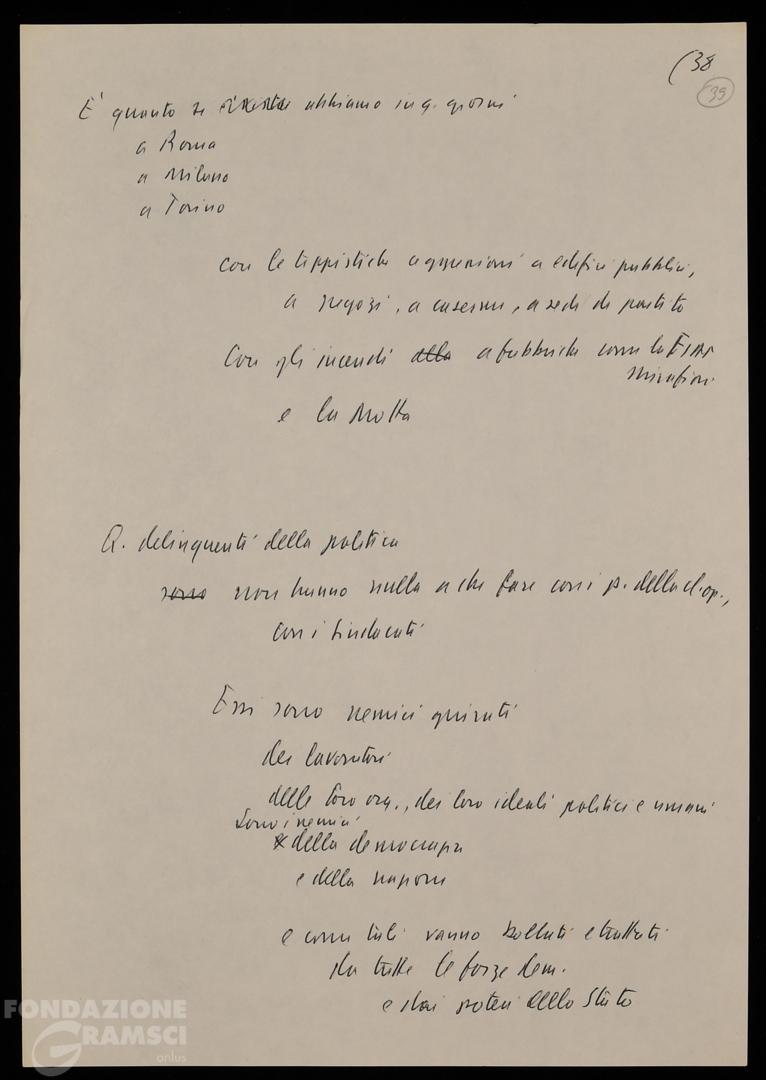 (38
39
E' quanto se abbiamo in q. giorni
a Roma
a Milano
a Torino
con le teppistiche aggressioni a edifici pubblici,
a negozi, a caserme, a sedi di partito
Con gli incendi alla a fabbriche come la FIAT
Mirafiori
e la Motta
Q. delinquenti della politica
sono non hanno nulla a che fare con i p. della cl. op.,
con i sindacati
Essi sono nemici giurati
dei lavoratori
delle loro org., dei loro ideali politici e umani
sono i nemici
e della democrazia
e della nazione
e come tali vanno bollati e trattati
da tutte le forze dem.
e dai poteri dello Stato
FONDAZIONE
GRAMSCI
onlus